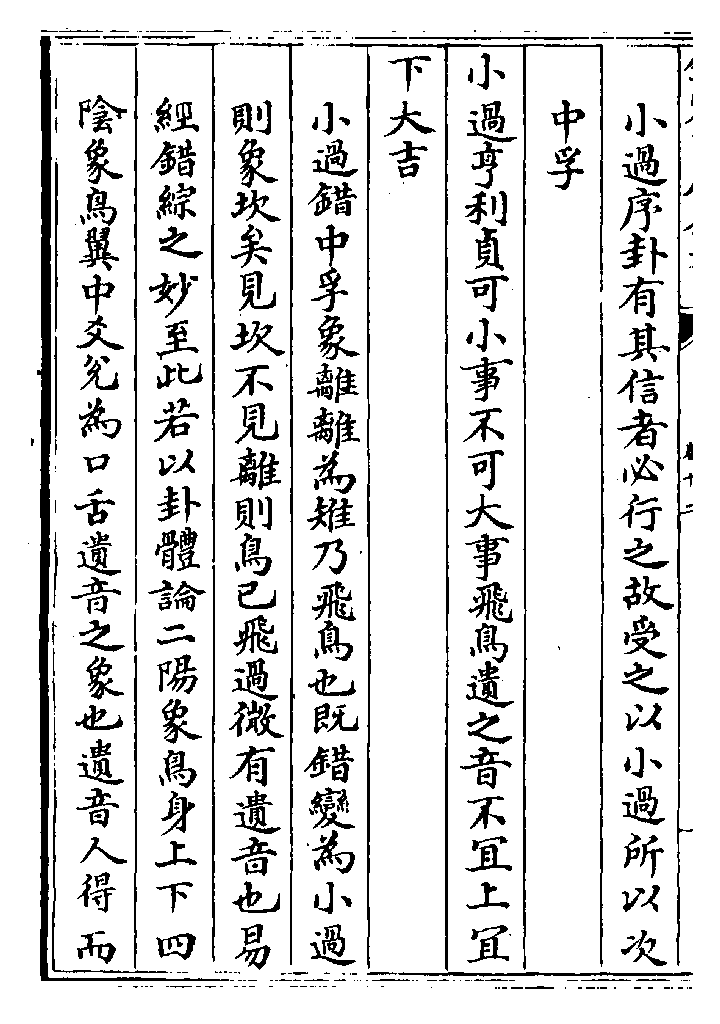 小過序卦有其信者必行之故受之以小過所以次
中孚
小過亨利貞可小事不可大事飛鳥遺之音不宜上宜
下大吉
小過錯中孚象離離為雉乃飛鳥也既錯變為小過
則象坎矣見坎不見離則鳥已飛過微有遺音也易
經錯綜之妙至此若以卦體論二陽象鳥身上下四
陰象鳥翼中爻兌為口舌遺音之象也遺音人得而